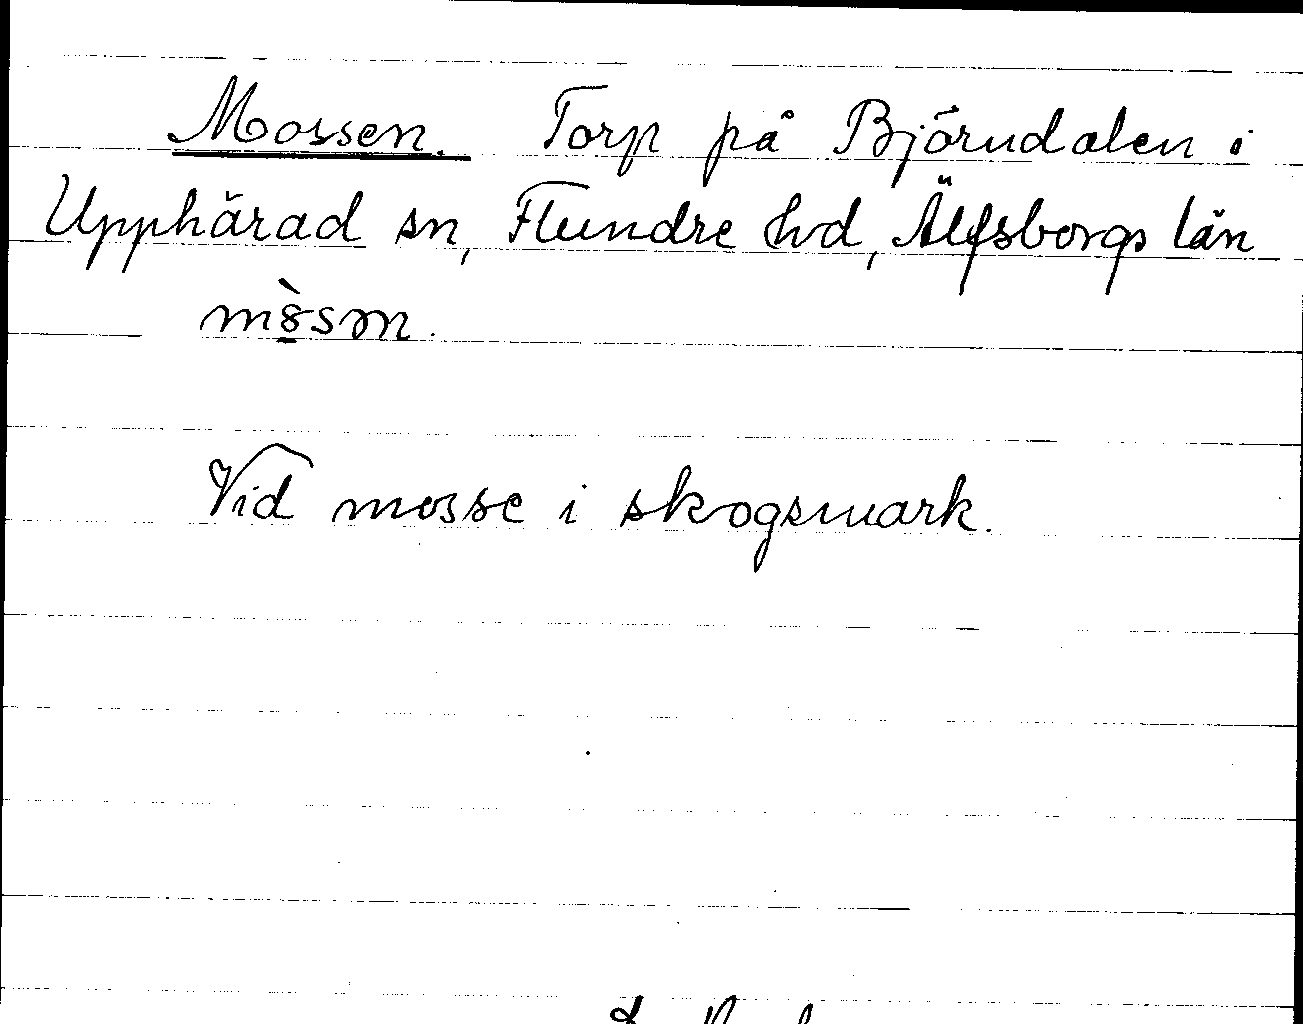 Mossen. Torp på Björndalen i
Upphärad sn, Flundre hd, Älfsborgs län
Vid mosse i skogsmark.